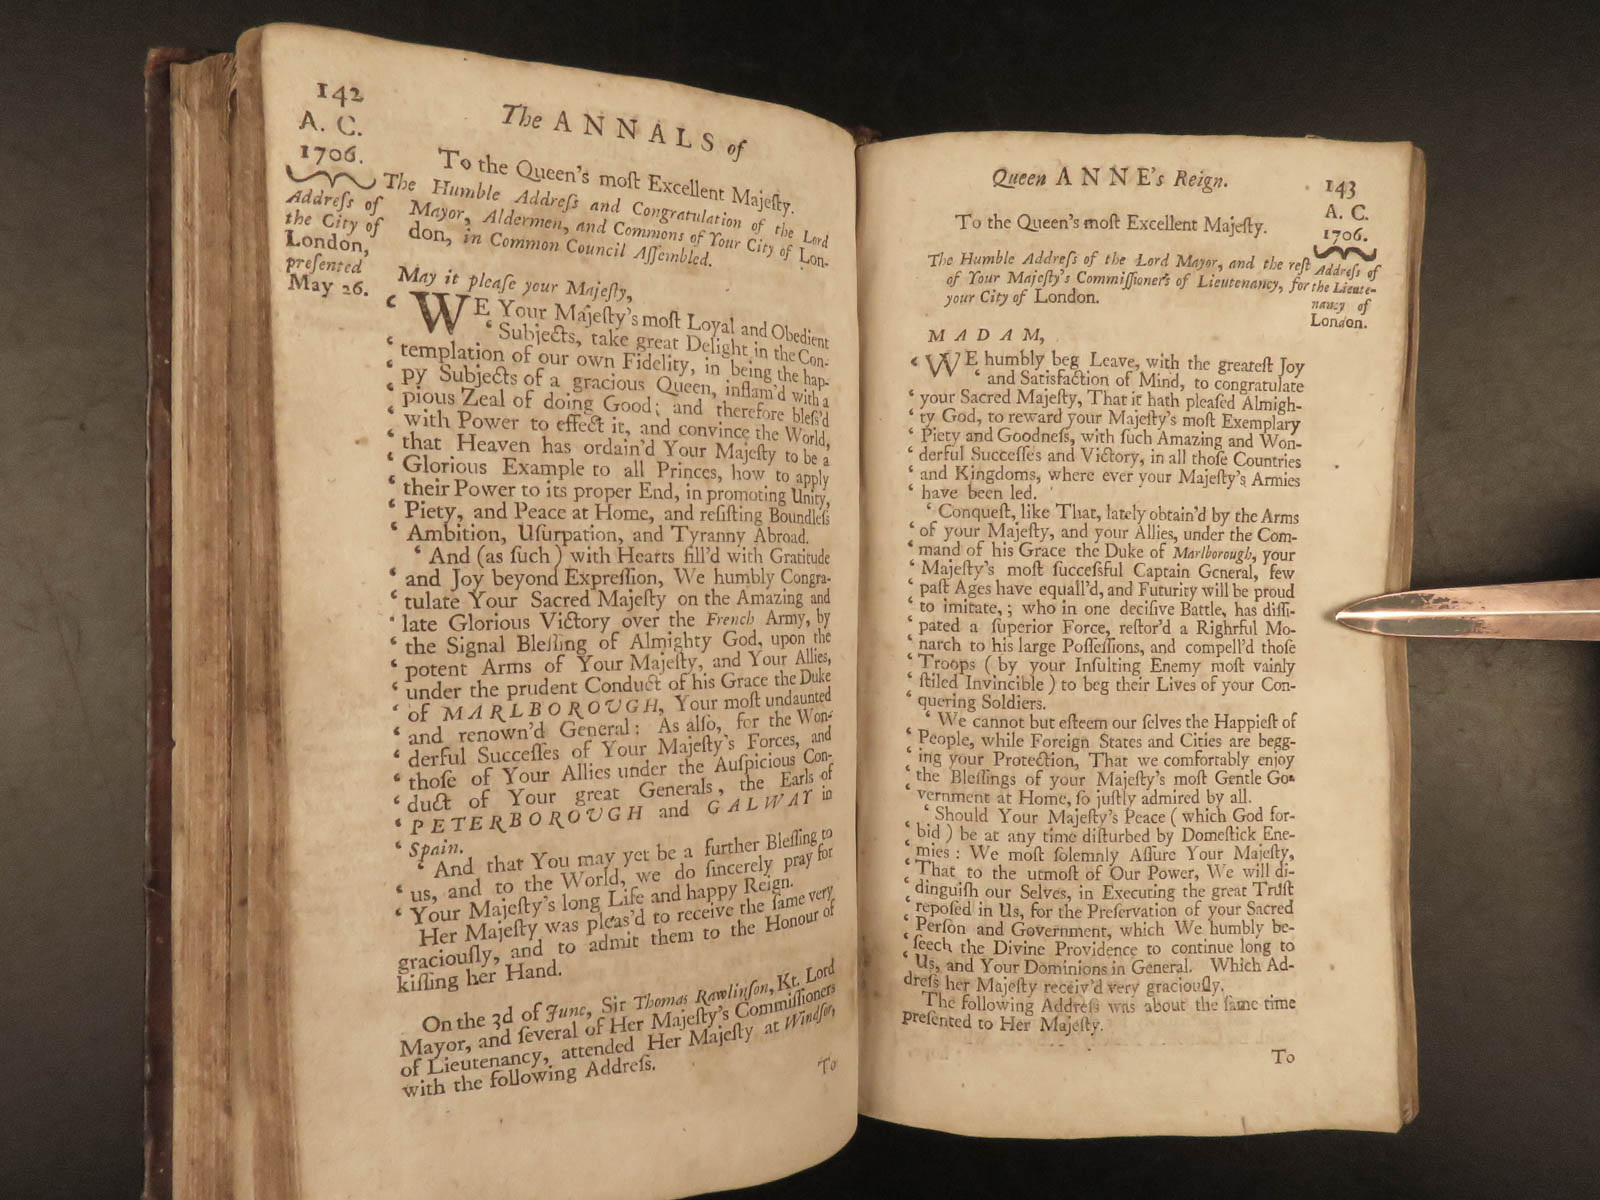 142
The ANNALS of
A. C.
1706.
To the Queen's moſt Excellent Majeſty.
The Humble Addreſs and Congratulation of the Lord
Mayor, Aldermen, and Commons of Your City of Lon-
don, in Common Council Aſſembled.
Addreſs of
the City of
London,
preſented
May 26.
May it pleaſe your Majeſty,
‘ WE Your Majeſty's moſt Loyal and Obedient
‘ Subjects, take great Delight in the Con-
‘ templation of our own Fidelity, in being the hap-
‘ py Subjects of a gracious Queen, inflam'd with a
‘ pious Zeal of doing Good; and therefore bleſs'd
‘ with Power to effect it, and convince the World,
‘ that Heaven has ordain'd Your Majeſty to be a
‘ Glorious Example to all Princes, how to apply
‘ their Power to its proper End, in promoting Unity,
‘ Piety, and Peace at Home, and reſiſting Boundleſs
‘ Ambition, Uſurpation, and Tyranny Abroad.
‘ And (as ſuch) with Hearts fill'd with Gratitude
‘ and Joy beyond Expreſſion, We humbly Congra-
‘ tulate Your Sacred Majeſty on the Amazing and
‘ late Glorious Victory over the French Army, by
‘ the Signal Bleſſing of Almighty God, upon the
‘ potent Arms of Your Majeſty, and Your Allies,
‘ under the prudent Conduct of his Grace the Duke
‘ of MARLBOROUGH, Your moſt undaunted
‘ and renown'd General: As alſo, for the Won-
‘ derful Succeſſes of Your Majeſty's Forces, and
‘ thoſe of Your Allies under the Auſpicious Con-
‘ duct of Your great Generals, the Earls of
‘ PETERBOROUGH and GALWAY in
‘ Spain.
‘ And that You may yet be a further Bleſſing to
‘ us, and to the World, we do ſincerely pray for
‘ Your Majeſty's long Life and happy Reign.
Her Majeſty was pleas'd to receive the ſame very
graciouſly, and to admit them to the Honour of
kiſſing her Hand.
On the 3d of June, Sir Thomas Rawlinſon, Kt. Lord
Mayor, and ſeveral of Her Majeſty's Commiſſioners
of Lieutenancy, attended Her Majeſty at Windſor,
with the following Addreſs.
To
Queen ANNE's Reign.
143
A. C.
1706.
To the Queen's moſt Excellent Majeſty.
The Humble Addreſs of the Lord Mayor, and the reſt
of Your Majeſty's Commiſſioners of Lieutenancy, for
your City of London.
Addreſs of
the Lieute-
nancy of
London.
MADAM,
‘ WE humbly beg Leave, with the greateſt Joy
‘ and Satisfaction of Mind, to congratulate
‘ your Sacred Majeſty, That it hath pleaſed Almigh-
‘ ty God, to reward your Majeſty's moſt Exemplary
‘ Piety and Goodneſs, with ſuch Amazing and Won-
‘ derful Succeſſes and Victory, in all thoſe Countries
‘ and Kingdoms, where ever your Majeſty's Armies
‘ have been led.
‘ Conqueſt, like That, lately obtain'd by the Arms
‘ of your Majeſty, and your Allies, under the Com-
‘ mand of his Grace the Duke of Marlborough, your
‘ Majeſty's moſt ſucceſsful Captain General, few
‘ paſt Ages have equall'd, and Futurity will be proud
‘ to imitate, ; who in one deciſive Battle, has diſſi-
‘ pated a ſuperior Force, reſtor'd a Righrful Mo-
‘ narch to his large Poſſeſſions, and compell'd thoſe
‘ Troops ( by your Inſulting Enemy moſt vainly
‘ ſtiled Invincible ) to beg their Lives of your Con-
‘ quering Soldiers.
‘ We cannot but eſteem our ſelves the Happieſt of
‘ People, while Foreign States and Cities are begg-
‘ ing your Protection, That we comfortably enjoy
‘ the Bleſſings of your Majeſty's moſt Gentle Go-
‘ vernment at Home, ſo juſtly admired by all.
‘ Should Your Majeſty's Peace ( which God for-
‘ bid ) be at any time diſturbed by Domeſtick Ene-
‘ mies : We moſt ſolemnly Aſſure Your Majeſty,
‘ That to the utmoſt of Our Power, We will di-
‘ dinguiſh our Selves, in Executing the great Truſt
‘ repoſed in Us, for the Preſervation of your Sacred
‘ Perſon and Government, which We humbly be-
‘ ſeech the Divine Providence to continue long to
‘ Us, and Your Dominions in General. Which Ad-
dreſs her Majeſty receiv'd very graciouſly.
The following Addreſs was about the ſame time
preſented to Her Majeſty.
To